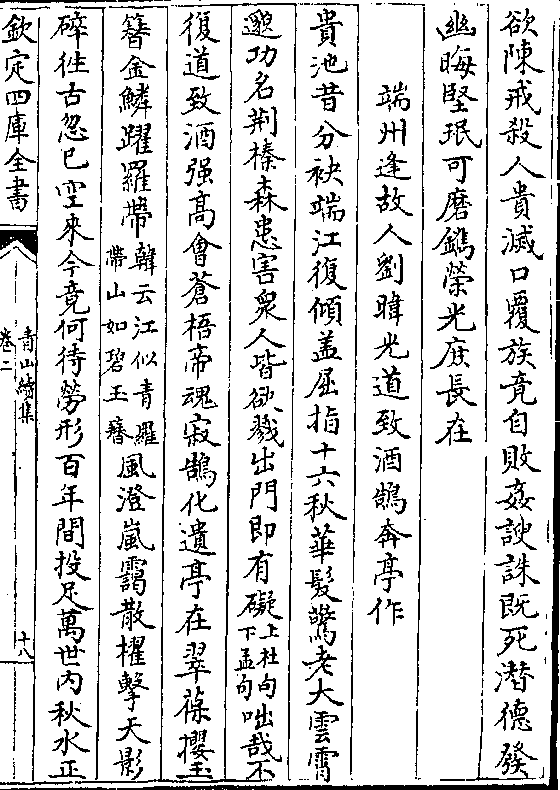 欲陳戒殺人貴滅口覆族竟自敗姦諛誅既死潛德發
幽晦堅珉可磨鐫榮光庶長在
端州逢故人劉暐光道致酒鵠奔亭作
貴池昔分袂端江復傾盖屈指十六秋華髮驚老大雲霄
邈功名荆榛森患害衆人皆欲戮出門即有礙上杜句下孟句咄哉不
復道致酒强高會蒼梧帝魂寂鵠化遺亭在翠葆攖玉
簪金鱗躍羅帶韓云江似青羅帶山如碧玉簪風澄嵐靄散櫂擊天影
碎徃古忽已空來今竟何待勞形百年間投足萬世内秋水正
欽定四庫全書
青山續集
卷二
十八